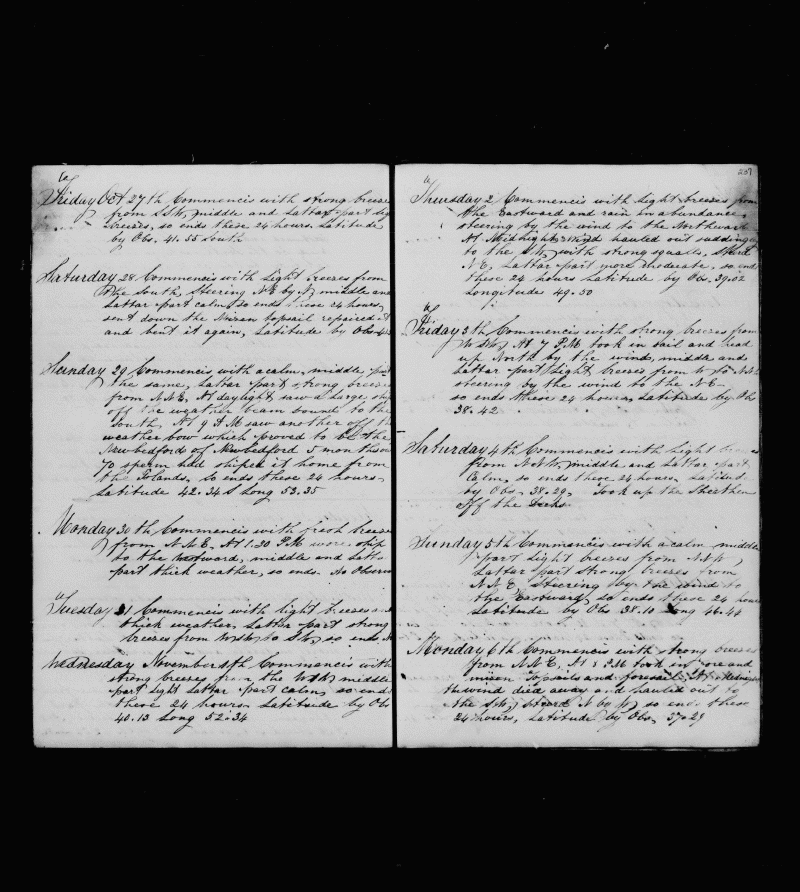 Friday Oct 27th Commencis with strong breeses
from SSW, middle and Lattar part lig
breeses, so ends these 24 hours. Latitude
by Obs. 41.55 South
Saturday 28 Commencis with light breeses from
the South, Steering NE by N, middle and
Lattar part calm, so ends these 24 hours,
sent down the Mizan topsail repaired it
and bent it again, Latitude by Obs
Sunday 29 Commencis with a calm, middle part
the same, Lattar part strong breeses
from N.N.E. At daylight saw a Large ship
off the weather beam bound to the
South. At 9 A M saw another off the
weather bow which proved to be the
Newbedford of Newbedford 5 months out
70 sperm had ship it home from
the Islands. So ends these 24 hours.
Latitude 42.34 S Long 53.35
Monday 30th Commencis with fresh breeses
from N.N.E. At 1.30 P.M wore ship
to the westward, middle and Latta
part thick weather, so ends. No Observ
Tuesday 31 Commencis with light breeses and
thick weather, Lattar part strong
breeses from to SW, so ends
Wednesday November 1th Commencis with
strong breeses from the middle
part light Lattar part calm, so ends
these 24 hours Latitude by Obs
40.13 Long 52:34
237
Thursday 2 Commencis with light breeses from
the Eastward and rain in abundance,
steering by the wind to the Northward
At Midnight wind hauled out suddingly
to the SW, with strong squalls, Steerd
N.E, Lattar part more moderate, so ends
these 24 hours Latitude by Obs. 39.02
Longitude 49.50
Friday 3th Commencis with strong breeses from
At 7 P.M took in sail and head
up North by the wind, middle and
Lattar part light breeses from to
steering by the wind to the NE
so ends these 24 hours, Latitude by Obs
38.42
Saturday 4th Commencis with light breeses
from N.N.W, middle and Lattar part
Calm, so ends these 24 hours, Latitude
by Obs. 38.29. Took up the Sheethen
off the Decks.
Sunday 5th Commencis with a calm, middle
part light breeses from
Lattar part strong breeses from
N.N.E, Steering by the wind to
the Eastward, so ends these 24 hours
Latitude by Obs 38.10 Long 46.44
Monday 6th Commencis with strong breeses
from N.N.E, At 8 P.M took in fore and
mizen topsails and foresail. At Midnight
the wind died away and hauled out by
the SW, Steerd N by so ends these
24 hours, Latitude by Obs. 37.29